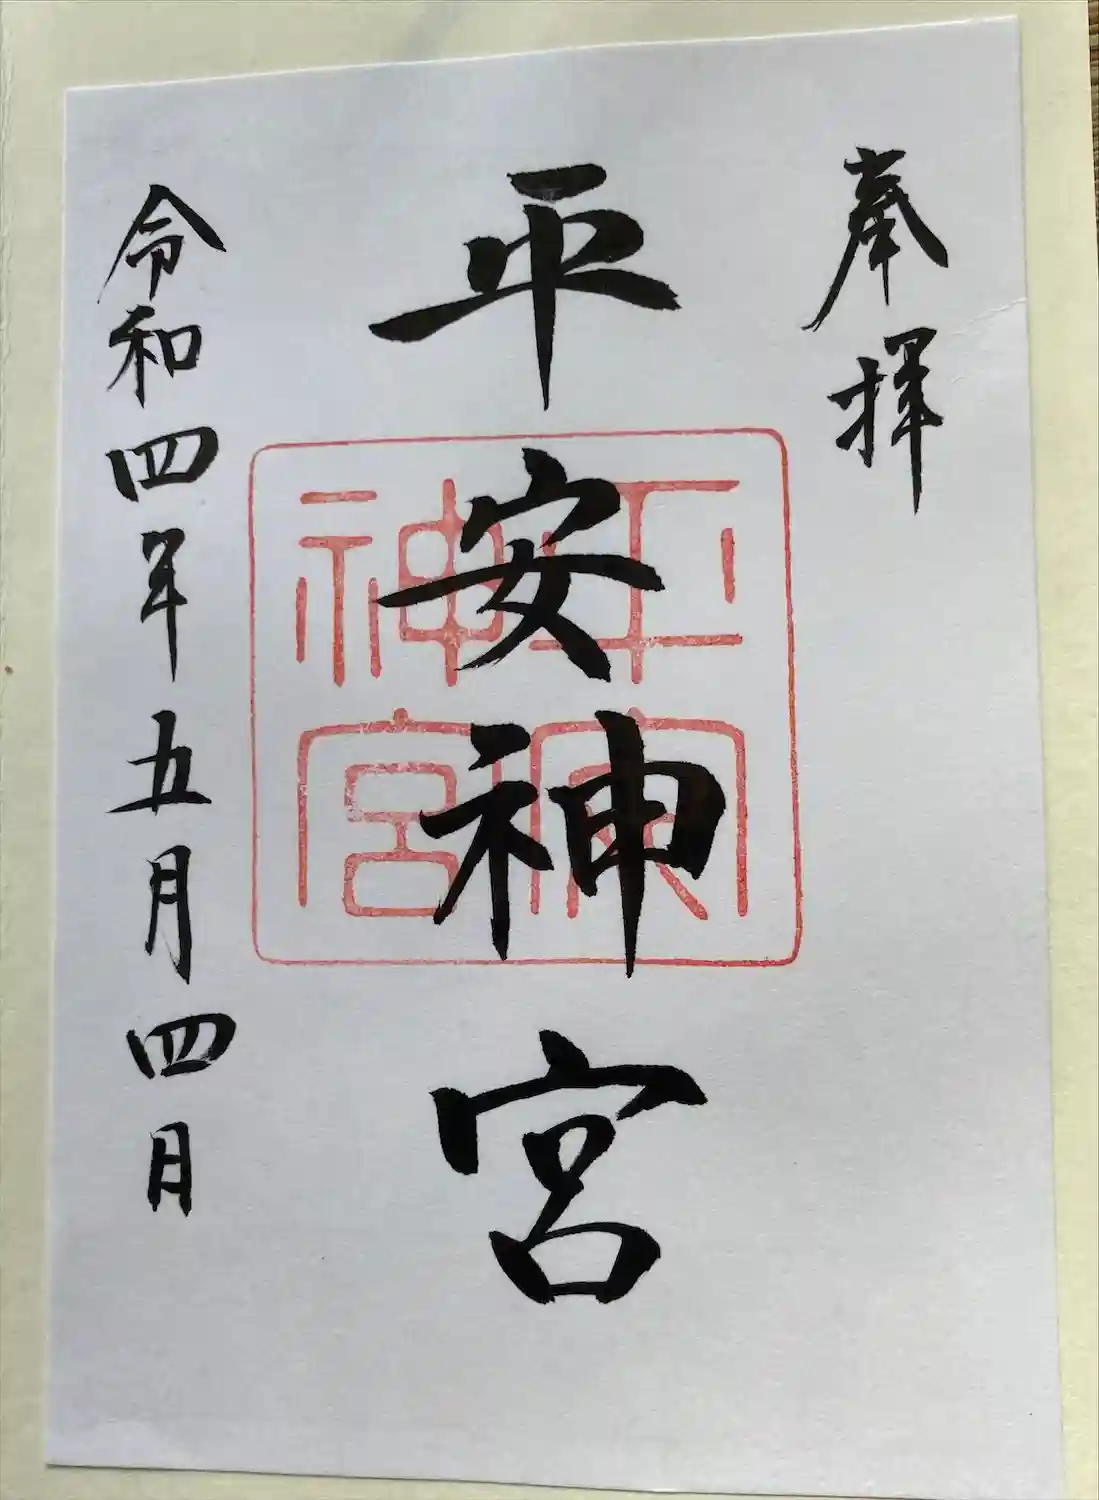 奉拝
平安神宮
平安神宮
令和四年五月四日